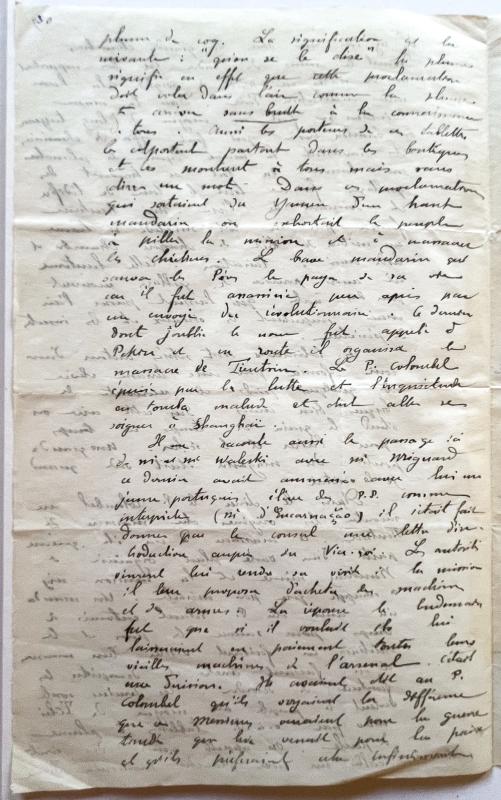 30
plume de coq. La signification est la
suivante : "qu'on se le dise" les plumes
signifie en effet que cette proclamation
doit voler dans l'air comme la plume
et arriver sans bruit à la connaissance
tous. Aussi les porteurs de ces tablettes
les colportent partout dans les boutiques
et les montrent à tous mais sans
dire un mot. Dans ces proclamations
qui sortaient du Yamen d'un haut
mandarin on exhortait le peuple
à piller la mission et à massacrer
les chrétiens. Le brave mandarin qui
sauva les Pères le paya de sa vie
car il fut assassiné peu après par
un envoyé du révolutionnaire. Ce dernier
dont j'oublie le nom fut appelé à
Pékin et en route il organisa le
massacre de Tientsin. Le P. Colombel
épuisé par la lutte et l'inquiétude
en tomba malade et dut aller se
soigner à Shanghaï.
Il me raconte aussi le passage ici
de mr et me Waleski avec mr Méguard
ce dernier avait amené avec lui un
jeune portugais élève des P.P. comme
interprète (mr d'Encarnação) il s'était fait
donner par le consul une lettre d'in-
troduction auprès du Vice-roi. Les autorités
vinrent lui rendre sa visite à la mission
il leur proposa d'acheter des machines
et des armes. La réponse le lendemain
fut que si il voulait ils lui
laisseraient en paiement toutes leurs
vieilles machines de l'arsenal. C'était
une dérision. Ils avaient dit au P.
Colombel qu'ils voyaient la différence
que ces Messieurs venaient pour la guerre
tandis que lui venait pour la paix
et qu'ils préféraient cela infiniment